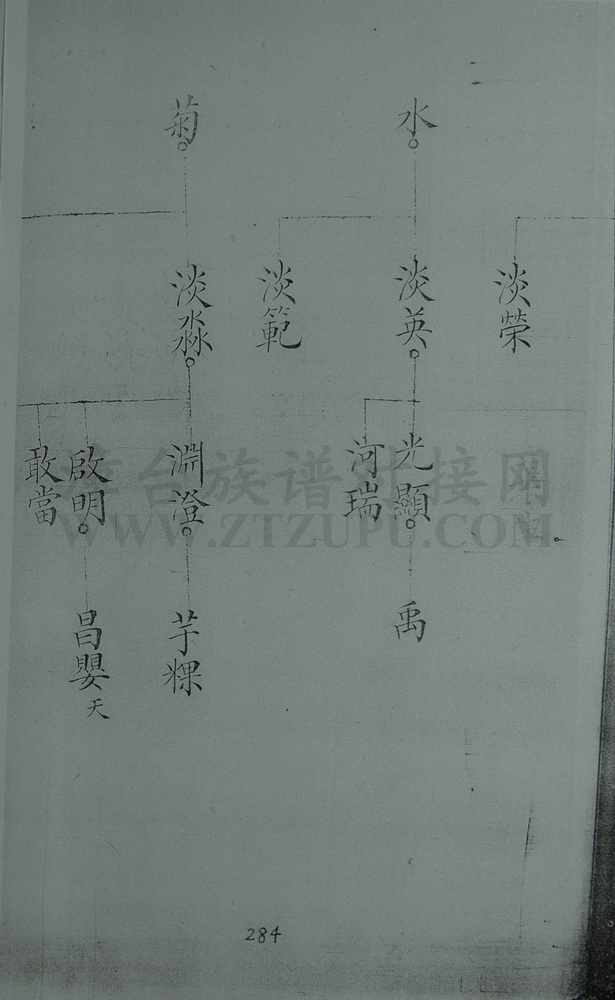 水
菊
淡榮
淡英
淡範
淡淼
光顯
河瑞
淵澄
啟明
敢當
禹
芋粿
昌嬰 天
族谱对接网
WWW.ZTZUPU.COM
284